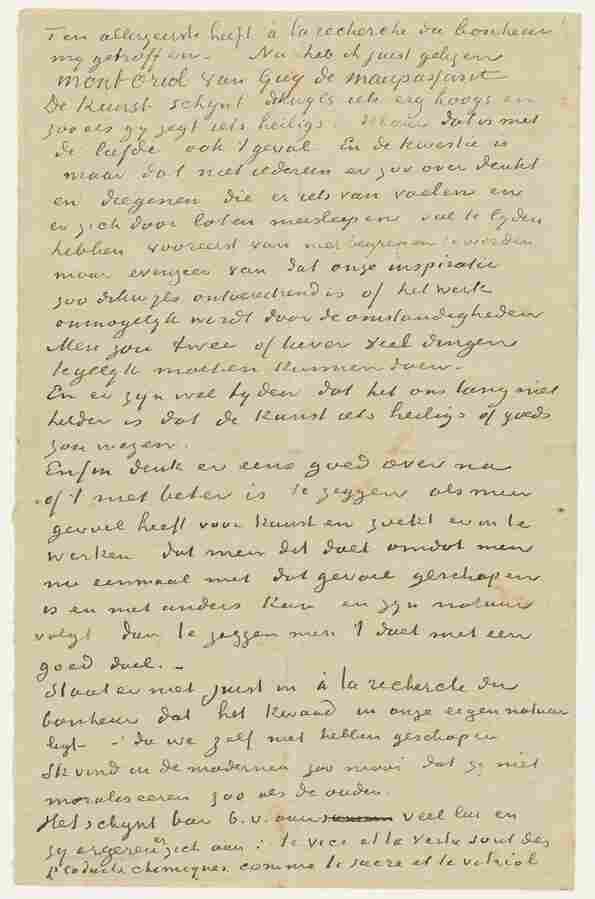 Ten allerzeerste heeft à la recherche du bonheur
mij getroffen. Nu heb ik juist gelezen
Mont Oriol van Guy de Maupassant
De Kunst schijnt dikwijls iets erg hoogs en
zoo als gij zegt iets heiligs. Maar dat is met
de liefde ook 't geval. En de kwestie is
maar dat niet iedereen er zoo over denkt
en diegenen die er iets van voelen en
er zich door laten meeslepen veel te lijden
hebben vooreerst van niet begrepen te worden
maar evenzeer van dat onze inspiratie
zoo dikwijls ontoereikend is of het werk
onmogelijk wordt door de omstandigheden
Men zou twee of liever veel dingen
tegelijk moeten kunnen doen.
En er zijn wel tijden dat het ons lang niet
helder is dat de kunst iets heiligs of goeds
zou wezen.
Enfin denk er eens goed over na
of 't niet beter is te zeggen als men
gevoel heeft voor kunst en zoekt er in te
werken dat men dit doet omdat men
nu eenmaal met dat gevoel geschapen
is en niet anders kan en zijn natuur
volgt dan te zeggen men 't doet met een
goed doel. –
Staat er niet juist in à la recherche du
bonheur dat het kwaad in onze eigen natuur
ligt – die we zelf niet hebben geschapen
Ik vind in de modernen zoo mooi dat ze niet
moraliseeren zoo als de ouden.
Het schijnt bar b.v. aan veel lui en
zij ergeren er zich aan: le vice et la vertu sont des
produits chimiques comme le sucre et le vitriol